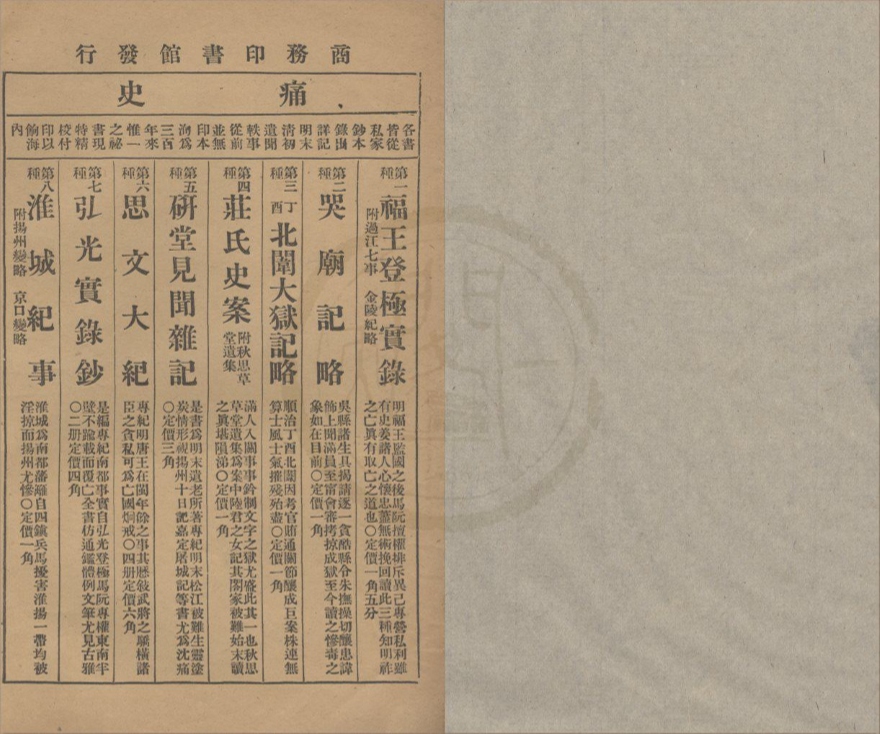 商務印書館發行
痛史
各書皆從私家鈔本錄出詳記明末清初遺聞軼事從前並無印本洵爲三百年來惟一之祕書現特精校付印以餉海內
第一種
福王登極實錄
附過江七事 金陵紀略
明福王監國之後馬阮擅權排斥異己專營私利雖
有史姜諸人心懷忠藎無術挽回讀此三種知明祚
之亡眞有取亡之道也〇定價一角五分
第二種
哭廟記略
吳縣諸生具揭請逐一貪酷縣令朱撫操切釀患諱
飾上聞滿員至甯會審拷掠成獄至今讀之慘毒之
象如在目前〇定價一角
第三種
丁酉北闈大獄記略
順治丁酉北闈因考官賄通關節釀成巨案株連無
算士風士氣摧殘殆盡〇定價一角
第四種
莊氏史案
附秋思草堂遺集
滿人入關事事鈐制文字之獄尤盛此其一也秋思
草堂遺集爲案中陸君之女記其闔家被難始末讀
之眞堪隕涕〇定價一角
第五種
研堂見聞雜記
是書爲明末遺老所著專紀明末松江被難生靈塗
炭情形視揚州十日記嘉定屠城記等書尤爲沈痛
〇定價三角
第六種
思文大紀
專紀明唐王在閩年餘之事其歷敍武將之驕橫諸
臣之貪私可爲亡國炯戒〇四册定價六角
第七種
弘光實錄鈔
是編專紀南都事實自弘光登極馬阮專權東南半
壁不踰載而覆亡全書仿通鑑體例文筆尤見古雅
〇二册定價四角
第八種
淮城紀事
附揚州變略 京口變略
淮城爲南都藩籬自四鎭兵馬擾害淮揚一帶均被
淫掠而揚州尤慘〇定價一角